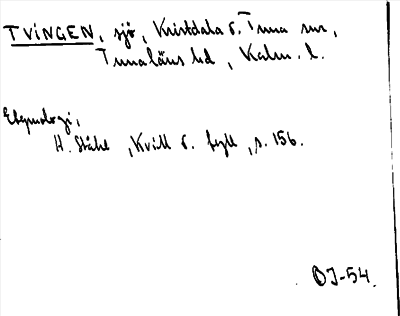 TVINGEN, sjö, Kristdala o. Tuna snr,
Tunaläns hd, Kalm. l.
Etymologi,
H. Ståhl, Kvill o. fyll, s. 156.
OJ-54.